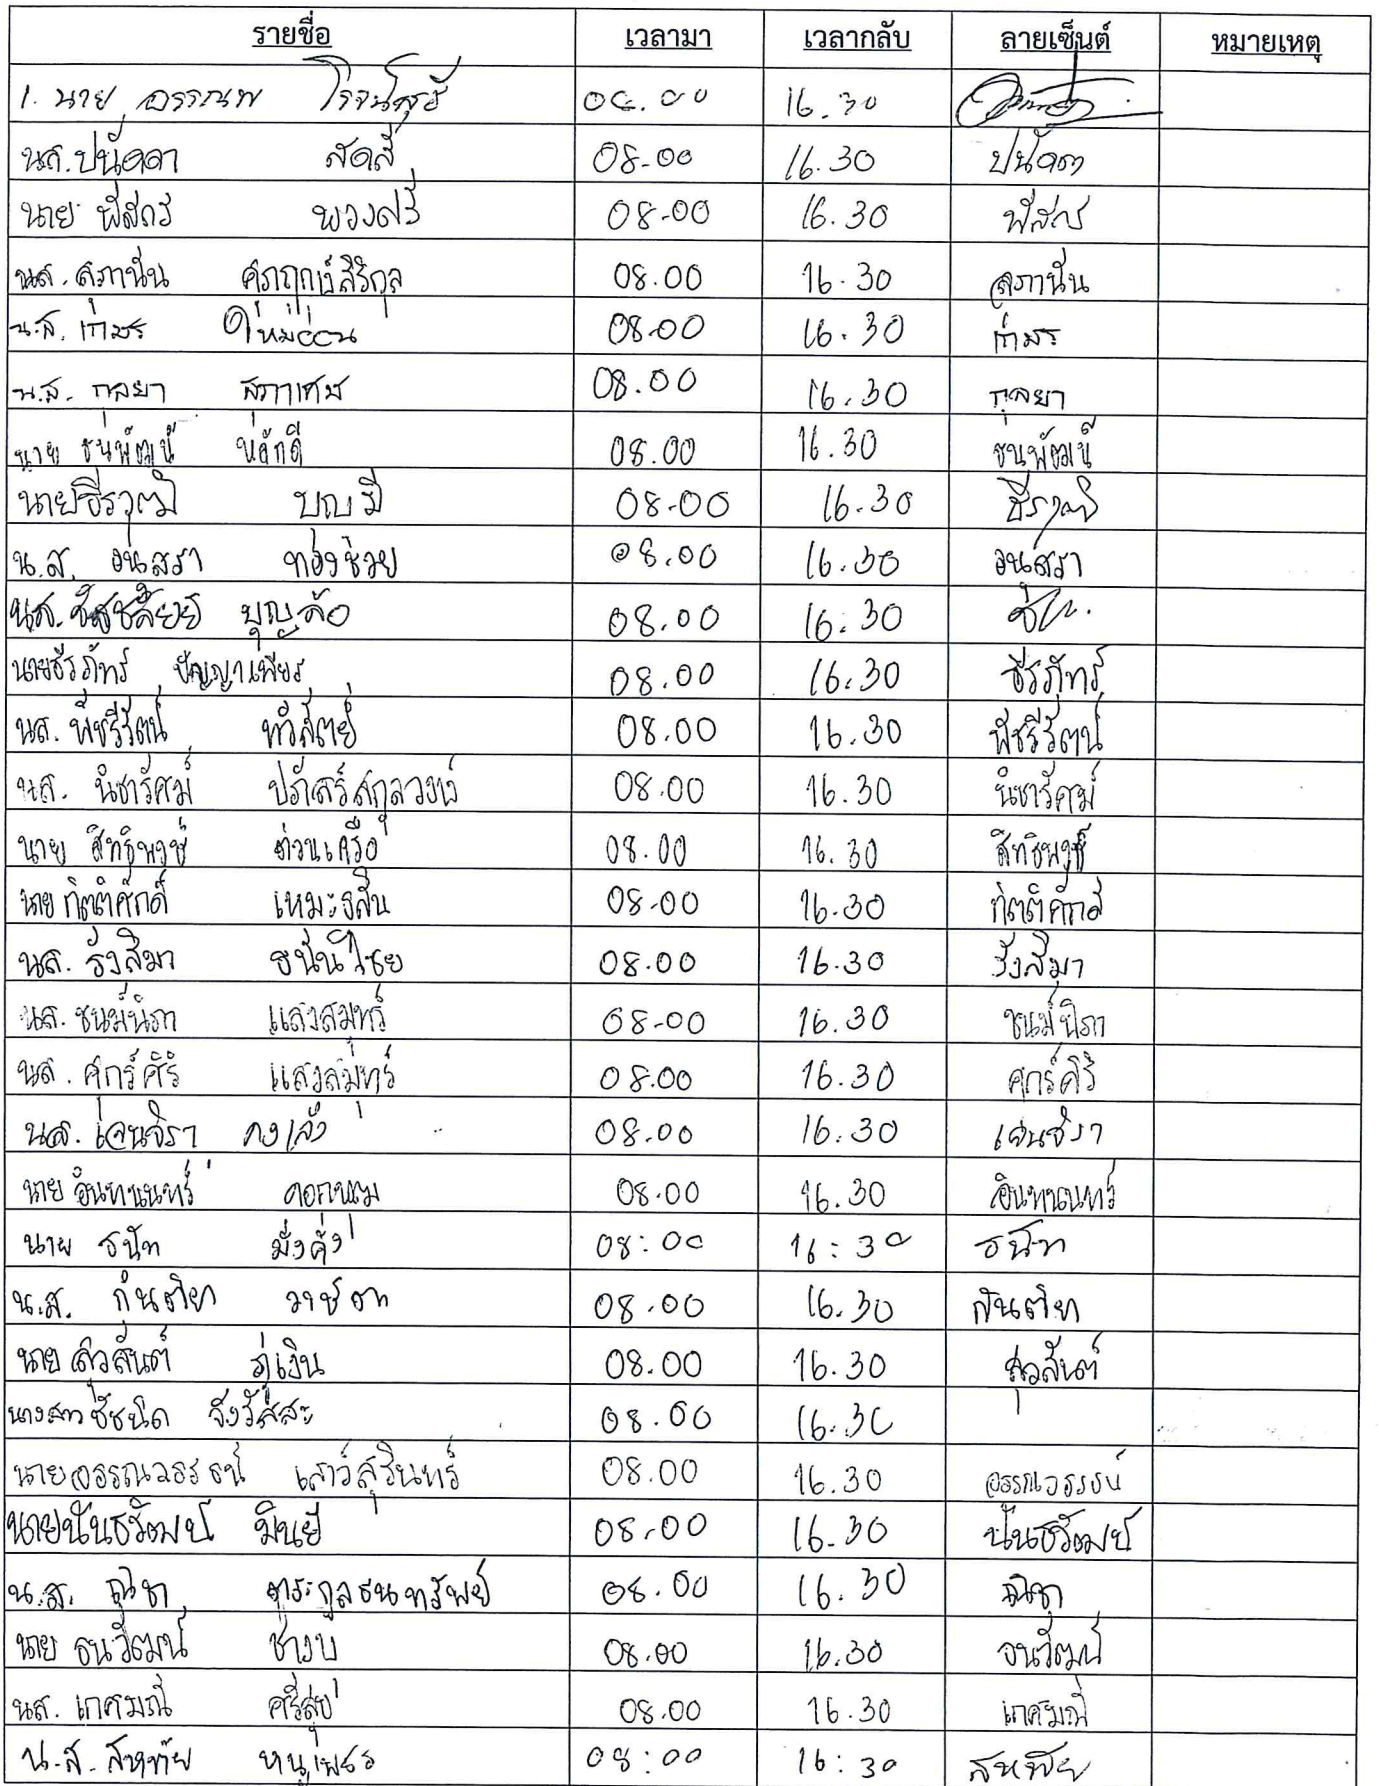 รายชื่อ เวลามา เวลากลับ ลายเซ็นต์ หมายเหตุ
1. นาย อรรณพ โรจน์สุธี 08.00 16.30
นส.ปนัดดา สดสี 08-00 16.30 ปนัดดา
นาย พิสกร พวงศรี 08-00 16.30 พิสกร
นส. ศุภานัน 08.00 16.30 ศุภานัน
น.ส. เกษร ใหม่อ่อน 08.00 16.30 เกษร
น.ส. กุลยา สภาเศษ 08.00 16.30 กุลยา
นาย ธนพัฒน์ 08.00 16.30 ธนพัฒน์
นายธีรวุฒิ บุญมี 08-00 16.30 ธีรวุฒิ
น.ส. อนุสรา ทองช่วย 08.00 16.30 อนุสรา
นส. บุญล้อ 08.00 16:30
นายธีรภัทร์ ปัญญาเพียร 08.00 16.30 ธีรภัทร์
นส. พัชรีรัตน์ ทวีสัตย์ 08.00 16.30 พัชรีรัตน์
นส. นิชารัศม์ ปภัสร์สกุลวงษ์ 08.00 16.30 นิชารัศม์
นาย สิทธิพงษ์ ด่วนเครือ 08.00 16.30 สิทธิพงษ์
นาย กิตติศักดิ์ เหมะธุลิน 08.00 16.30 กิตติศักดิ์
นส. รังสิมา ธนันไชย 08.00 16.30 รังสิมา
นส. ชนม์นิภา แสงสมุทร์ 08-00 16.30 ชนม์นิภา
นส. ศุกร์ศิริ แสงสมุทร์ 08.00 16.30 ศุกร์ศิริ
นส. เจนจิรา คงเส้ง 08.00 16.30 เจนจิรา
นาย อินทนนทร์ ดอกหม 08.00 16.30 อินทนนทร์
นาย ธนัท มั่งคั่ง 08:00 16:30 ธนัท
น.ส. กันติยา 08.00 16.30 กันติยา
นาย ศิวสันต์ ภู่เงิน 08.00 16.30 ศิวสันต์
นางสาว ชัชนิด จึงวัสสะ 08.00 16.30
นายอรรณวรรธน์ เสาร์สุรินทร์ 08.00 16.30 อรรณวรรธน์
นายนันธวัฒน์ มินยี 08.00 16.30 นันธวัฒน์
น.ส. ณิชา ตระกูลธนทรัพย์ 08.00 16.30 ณิชา
นาย ธนวัฒน์ ช้างบ 08.00 16.30 ธนวัฒน์
นส. เกศมณี ศรีสุข 08.00 16.30 เกศมณี
น.ส. สหทัย หนูเพชร 08:00 16:30 สหทัย